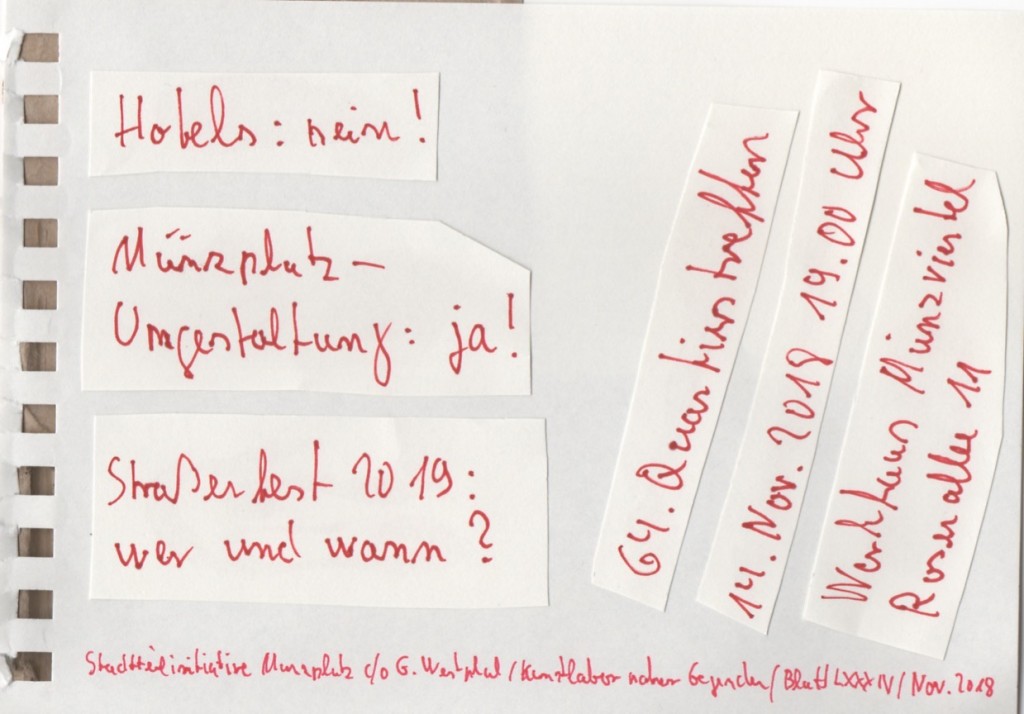 Hotels: nein!
Münzplatz-
Umgestaltung: ja!
Straßenfest 2019:
wer und wann?
64. Quartierstreffen
14. Nov. 2018 19.00 Uhr
Werkhaus Münzviertel
Rosenallee 11
Stadtteilinitiative Münzplatz c/o G. Westphal / Kunstlabor naher Gegenden / Blatt LXXXIV / Nov. 2018